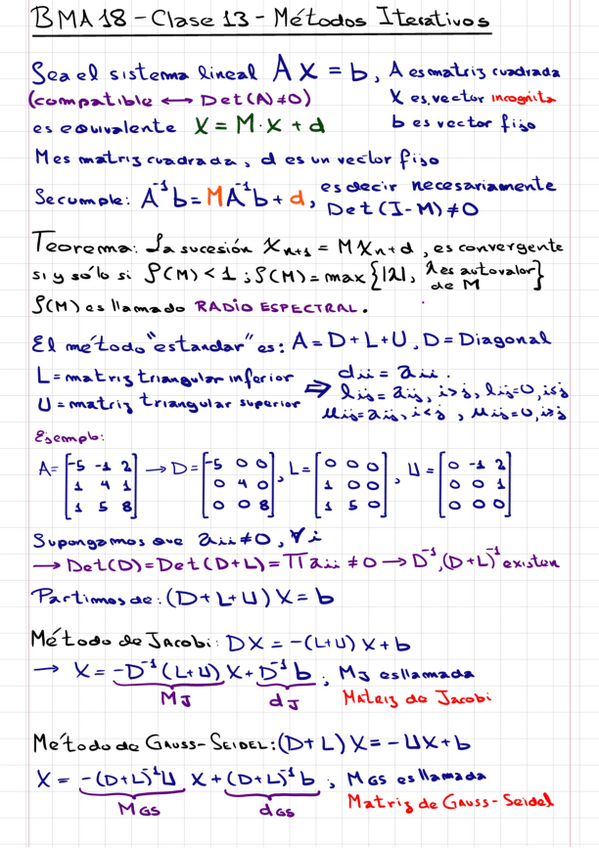 BMA18 - Clase 13 - Métodos Iterativos
Sea el sistema lineal AX = b, A es matriz cuadrada
(compatible ↔ Det(A)≠0) X es vector incognita
es equivalente X = M·X + d b es vector fijo
M es matriz cuadrada, d es un vector fijo
Se cumple: A⁻¹b = MA⁻¹b + d, es decir necesariamente
Det(I-M)≠0
Teorema: La sucesión Xn+1 = MXn+d, es convergente
si y sólo si ρ(M) < 1 ; ρ(M) = max{|λ|, λ es autovalor de M}
ρ(M) es llamado RADIO ESPECTRAL.
El método "estandar" es: A = D+L+U, D = Diagonal
L = matriz triangular inferior ⇒ dii = aii.
U = matriz triangular superior lij = aij, i>j, lij=0, i≤j
uij = aij, i<j, uij=0, i≥j
Ejemplo:
A = [-5 -1 2] → D = [-5 0 0], L = [0 0 0], U = [0 -1 2]
[1 4 1] [0 4 0] [1 0 0] [0 0 1]
[1 5 8] [0 0 8] [1 5 0] [0 0 0]
Supongamos que aii≠0, ∀i
→ Det(D) = Det(D+L) = Πaii ≠ 0 → D⁻¹, (D+L)⁻¹ existen
Partimos de: (D+L+U)X = b
Método de Jacobi: DX = -(L+U)X+b
→ X = -D⁻¹(L+U)X + D⁻¹b ; MJ es llamada
MJ dJ Matriz de Jacobi
Método de GAUSS-SEIDEL: (D+L)X = -UX+b
X = -(D+L)⁻¹U X + (D+L)⁻¹b ; MGS es llamada
MGS dGS Matriz de Gauss-Seidel